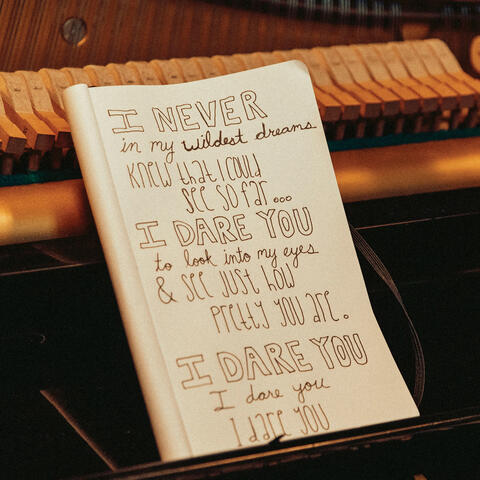 I NEVER
in my wildest dreams
KNEW that I could
see so far...
I DARE YOU
to look into my eyes
& see just how
pretty you are.
I DARE YOU
I dare you
I dare YOU